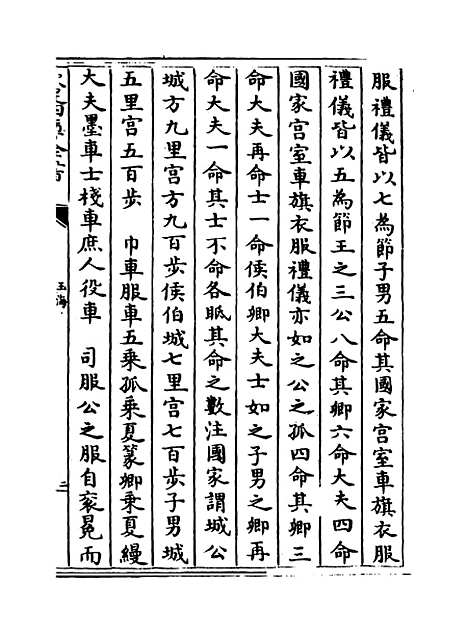 服禮儀皆以七為節子男五命其國家宫室車旗衣服
禮儀皆以五為節王之三公八命其卿六命大夫四命
國家宫室車旗衣服禮儀亦如之公之孤四命其卿三
命大夫再命士一命侯伯卿大夫士如之子男之卿再
命大夫一命其士不命各眡其命之數注國家謂城公
城方九里宫方九百步侯伯城七里宫七百步子男城
五里宫五百步 巾車服車五乗孤乗夏篆卿乗夏縵
大夫墨車士棧車庶人役車 司服公之服自衮冕而
玉海
二